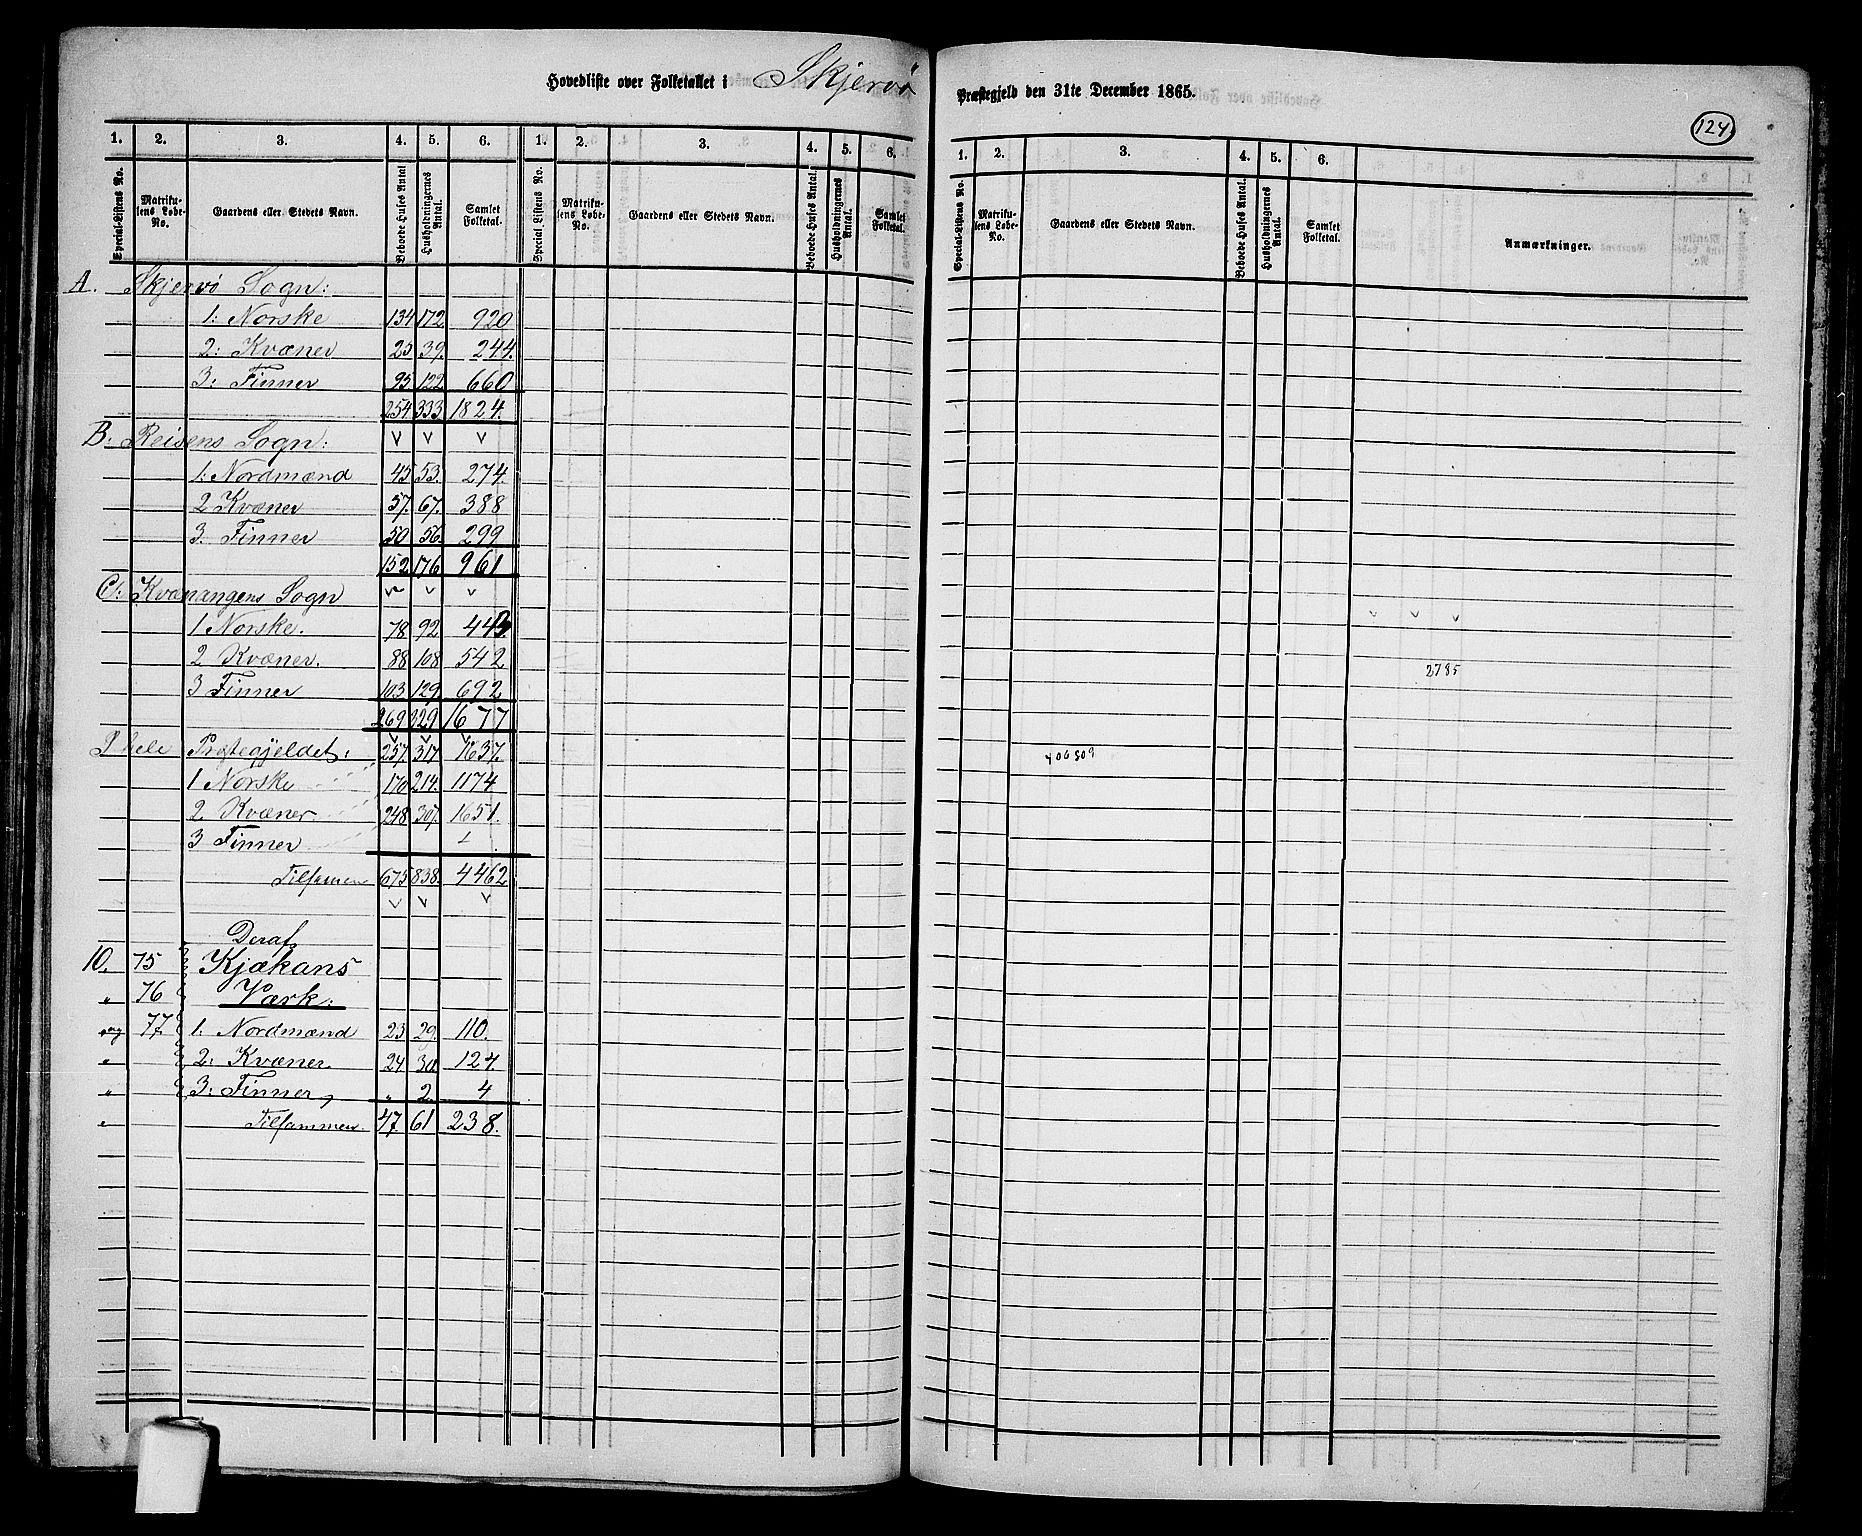 Hovedliste over Folketallet i Skjervö Præstegjeld den 31te December 1865.
124
1. 2. 3. 4. 5. 6. 1. 2. 3. 4. 5. 6. 1. 2. 3. 4. 5. 6.
Special-Listens No. Matrikulens Løbe-No. Gaardens eller Stedets Navn. Beboede Huses Antal Husholdningernes Antal. Samlet Folketal.
Special Listens No. Matrikulens Løbe-No. Gaardens eller Stedets Navn. Beboede Huses Antal. Husholdningernes Antal. Samlet Folketal.
Special-Listens No. Matrikulens Løbe-No. Gaardens eller Stedets Navn. Beboede Huses Antal. Husholdningernes Antal. Samlet Folketal. Anmærkninger.
A. Skjervö Sogn:
1: Norske 134 172 920
2: Kvæner 25 39. 244.
3: Finner 95 122 660
254 333 1824.
B: Reisens Sogn:
1: Nordmænd 45 53. 274.
2 Kvæner 57. 67. 388
3. Finner 50 56. 299
152 176 961
C: Kvænangens Sogn
1 Norske. 78 92 443
2 Kvæner. 88 108 542
3 Finner 103 129 692
269 329 1677
I hele Præstegjeldet: 257. 317 1637.
1 Norske 170 214. 1174
2 Kvæner 248 307. 1651.
3 Finner
Tilsammen 675 838. 4462
Deraf
10. 75 Kjækans
" 76 Værk:
og 77 1. Nordmænd 23 29. 110.
" 2: Kvæner 24 30 124.
" 3: Finner " 2 4
" Tilsammen. 47. 61 238.
2785
406809